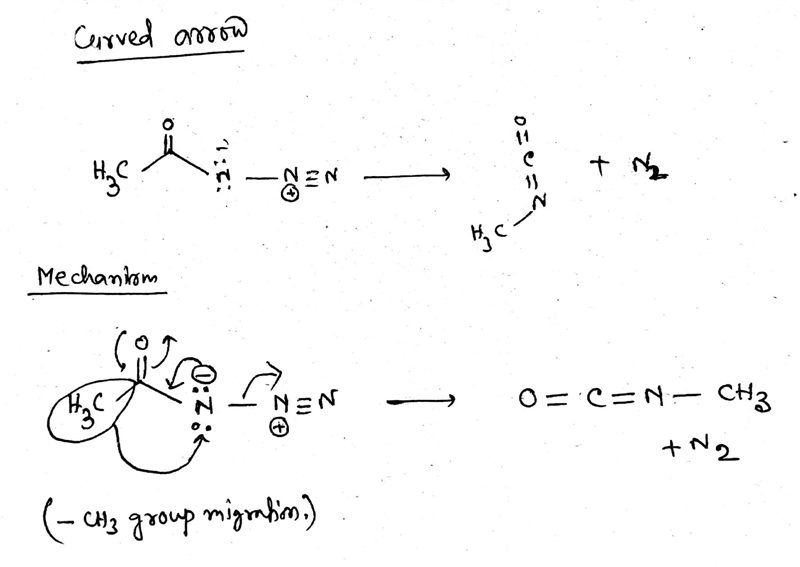 Curved arrow
O
H3C N̈ — N ≡ N ⟶ O = C = N H3C + N2
⊕
Mechanism
O
⊖
H3C N — N ≡ N ⟶ O = C = N — CH3
⊕
+ N2
(– CH3 group migration.)